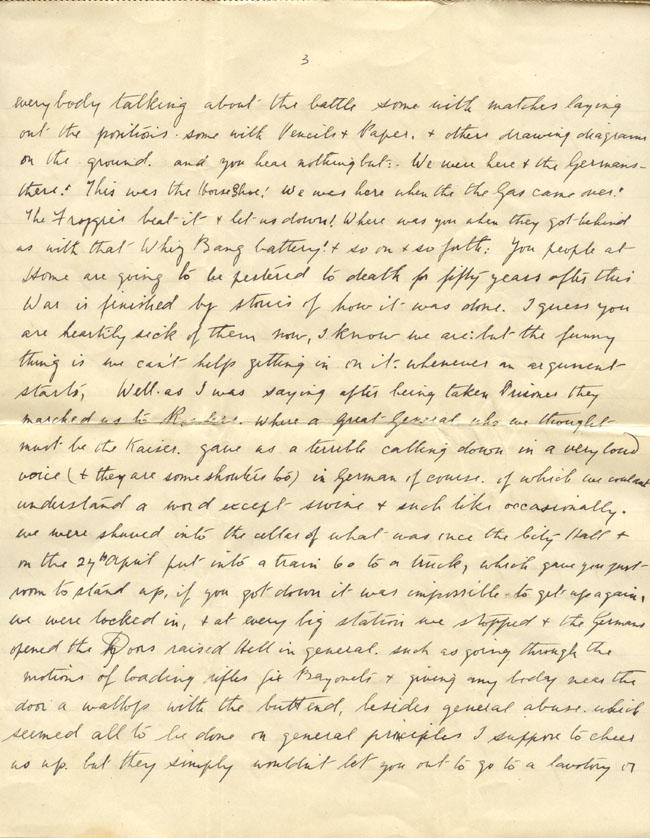 3
everybody talking about the battle some with matches laying
out the positions. some with Pencils & Paper. & others drawing diagrams
on the ground. and you hear nothing but:- We were here & the Germans-
there! This was the Horse Shoe! We was here when the the Gas came over!
The Froggies beat it & let us down! Where was you when they got behind
us with that Whiz Bang battery! & so on & so forth: You people at
Home are going to be pestered to death for fifty years after this
War is finished by stories of how it was done. I guess you
are heartily sick of them now, I know we are: but the funny
thing is we can't help getting in on it. whenever an argument
starts, Well. as I was saying after being taken Prisoner they
marched us to where a Great General who we thought
must be the Kaiser. gave us a terrible calling down in a very loud
voice (& they are some shouters too) in German of course. of which we couldnt
understand a word except swine & such like occasionally.
we were shoved into the cellar of what was once the City Hall &
on the 27th April put into a train 60 to a truck, which gave you just
room to stand up, if you got down it was impossible to get up again,
we were locked in, & at every big station we stopped & the Germans
opened the Doors raised Hell in general. such as going through the
motions of loading rifles fix Bayonets & giving any body near the
door a wallop with the butt end, besides general abuse. which
seemed all to be done on general principles I suppose to cheer
us up. but they simply wouldn't let you out to go to a lavotory or